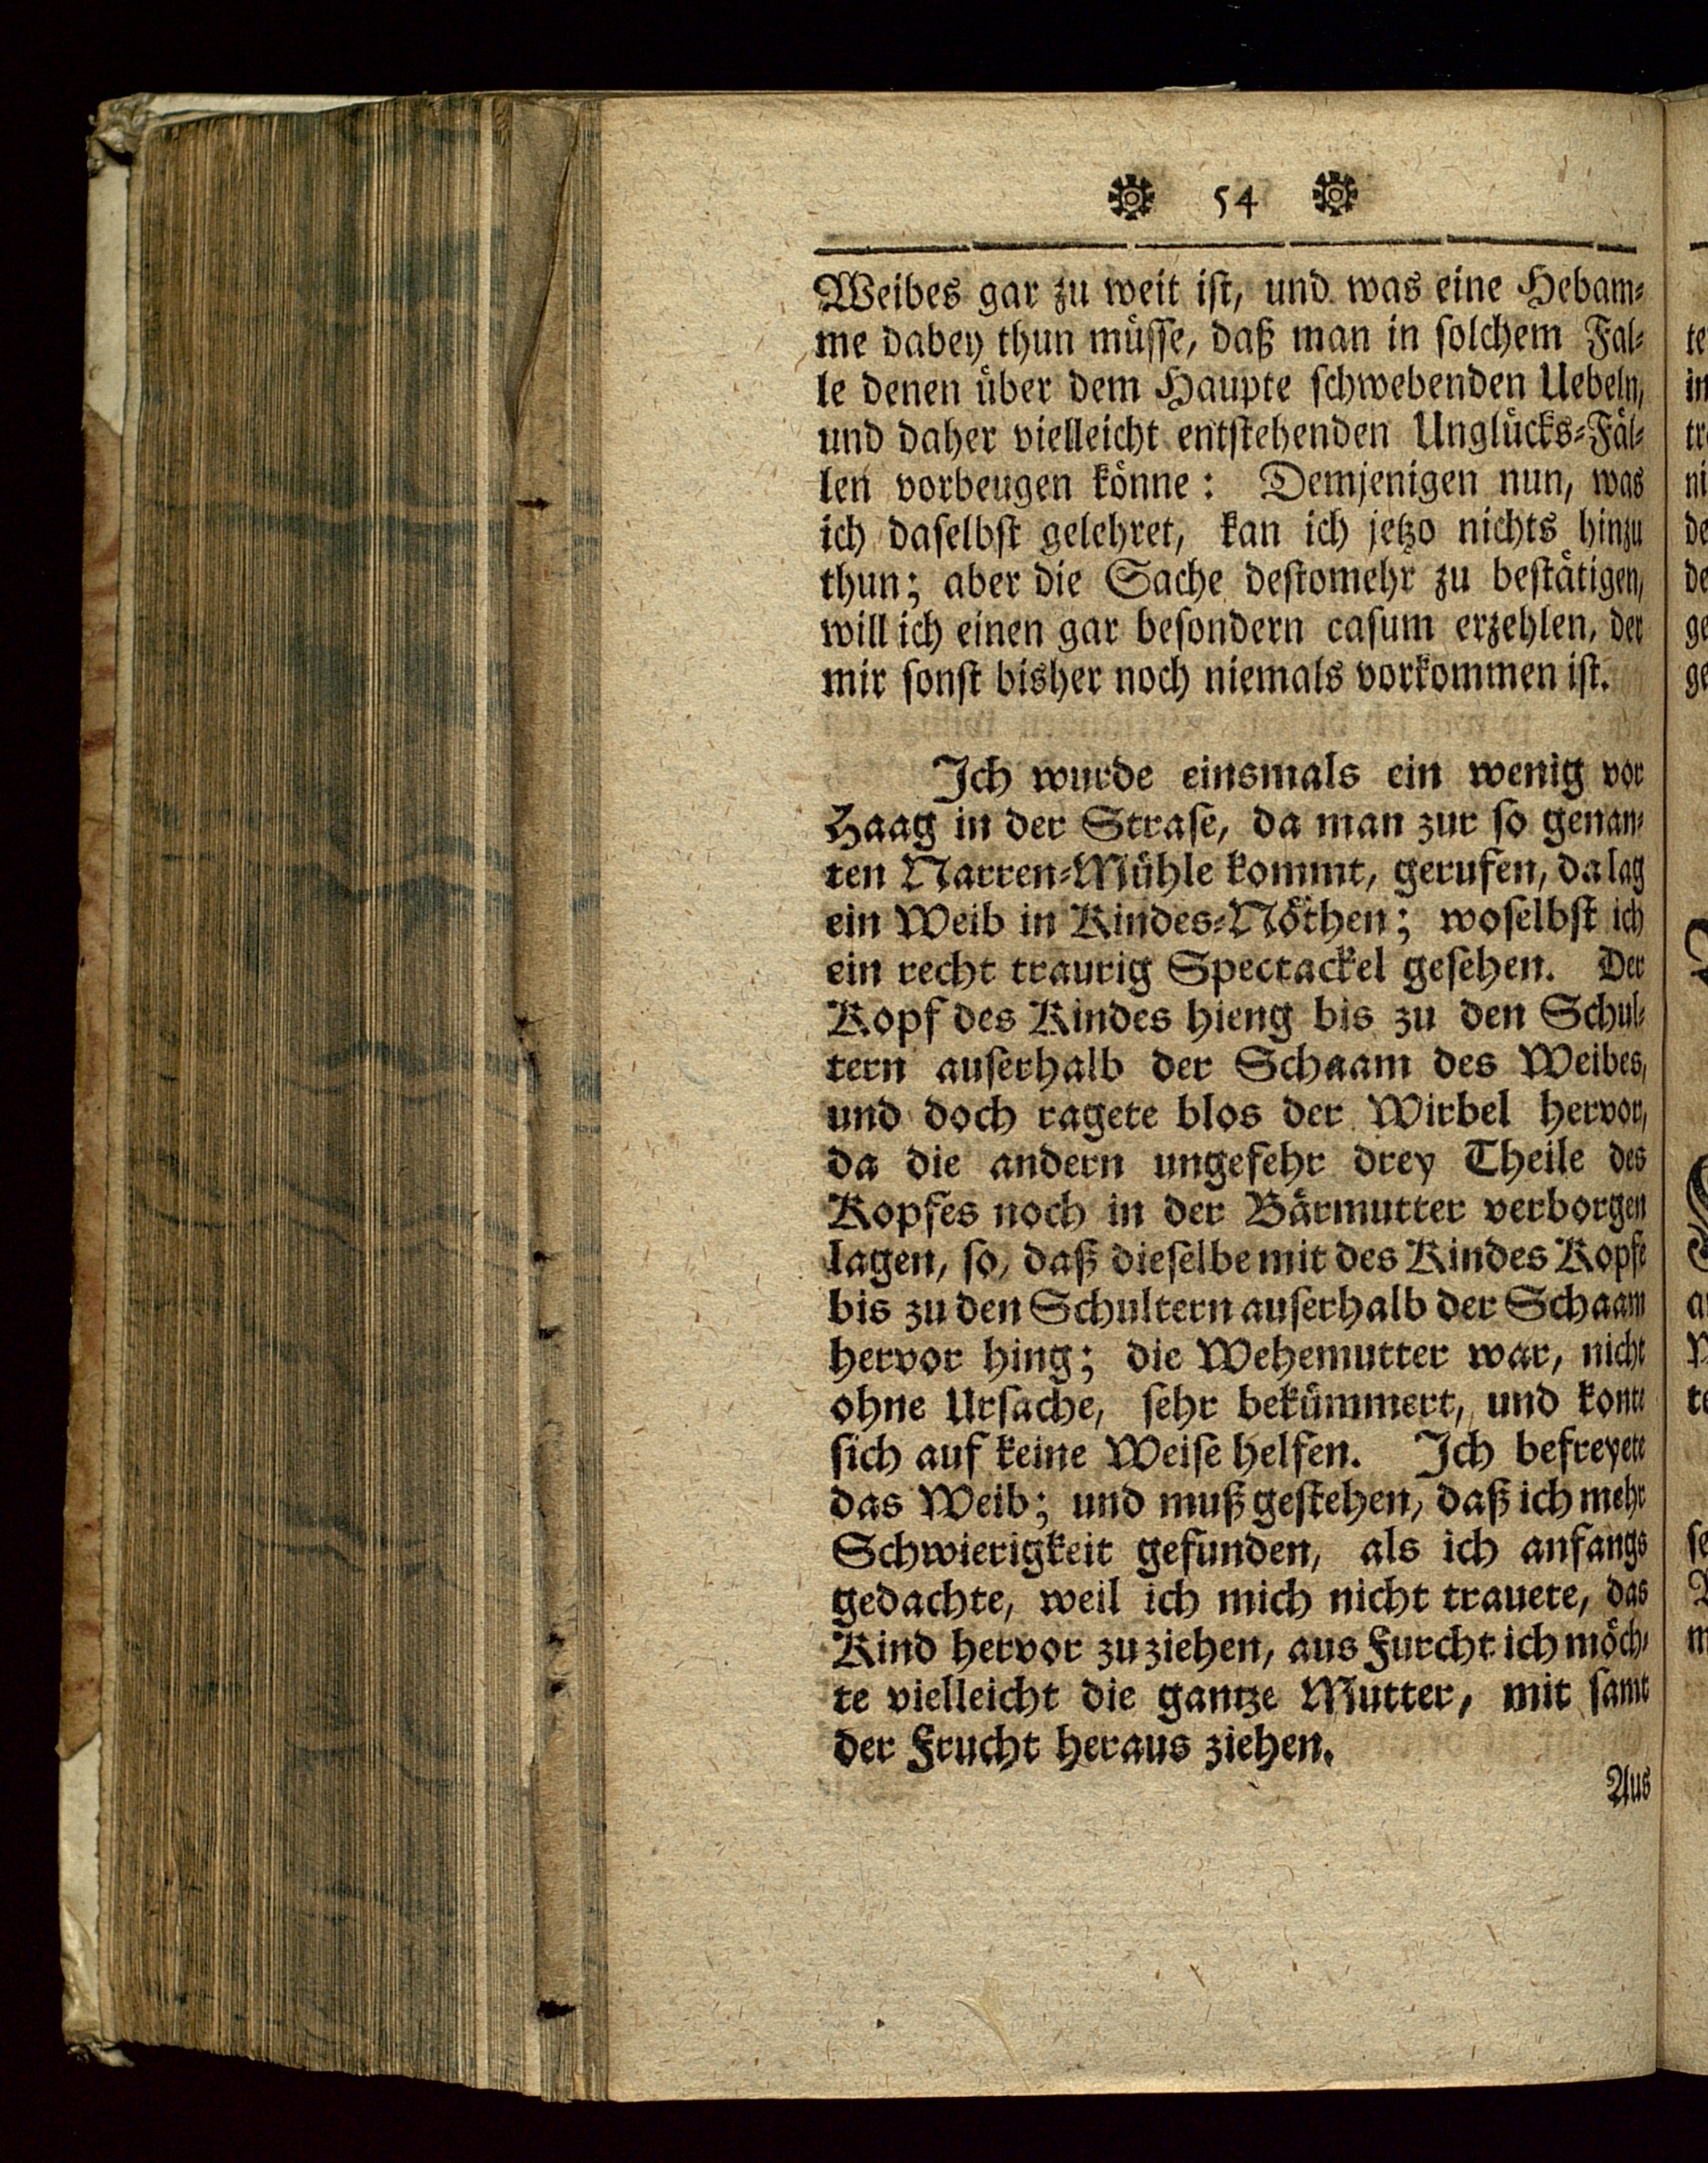 54
Weibes gar zu weit ist, und was eine Hebam-
me dabey thun müsse, daß man in solchem Fal-
le denen über dem Haupte schwebenden Uebeln,
und daher vielleicht entstehenden Unglücks-Fäl-
len vorbeugen könne: Demjenigen nun, was
ich daselbst gelehret, kan ich jetzo nichts hinzu
thun; aber die Sache destomehr zu bestätigen,
will ich einen gar besondern casum erzehlen, der
mir sonst bisher noch niemals vorkommen ist.
Ich wurde einsmals ein wenig vor
Haag in der Strase, da man zur so genan-
ten Narren-Mühle kommt, gerufen, da lag
ein Weib in Kindes-Nöthen; woselbst ich
ein recht traurig Spectackel gesehen. Der
Kopf des Kindes hieng bis zu den Schul-
tern auserhalb der Schaam des Weibes,
und doch ragete blos der Wirbel hervor,
da die andern ungefehr drey Theile des
Kopfes noch in der Bärmutter verborgen
lagen, so, daß dieselbe mit des Kindes Kopfe
bis zu den Schultern auserhalb der Schaam
hervor hing; die Wehemutter war, nicht
ohne Ursache, sehr bekümmert, und konte
sich auf keine Weise helfen. Ich befreyete
das Weib; und muß gestehen, daß ich mehr
Schwierigkeit gefunden, als ich anfangs
gedachte, weil ich mich nicht trauete, das
Kind hervor zu ziehen, aus Furcht ich möch-
te vielleicht die gantze Mutter, mit samt
der Frucht heraus ziehen.
Aus